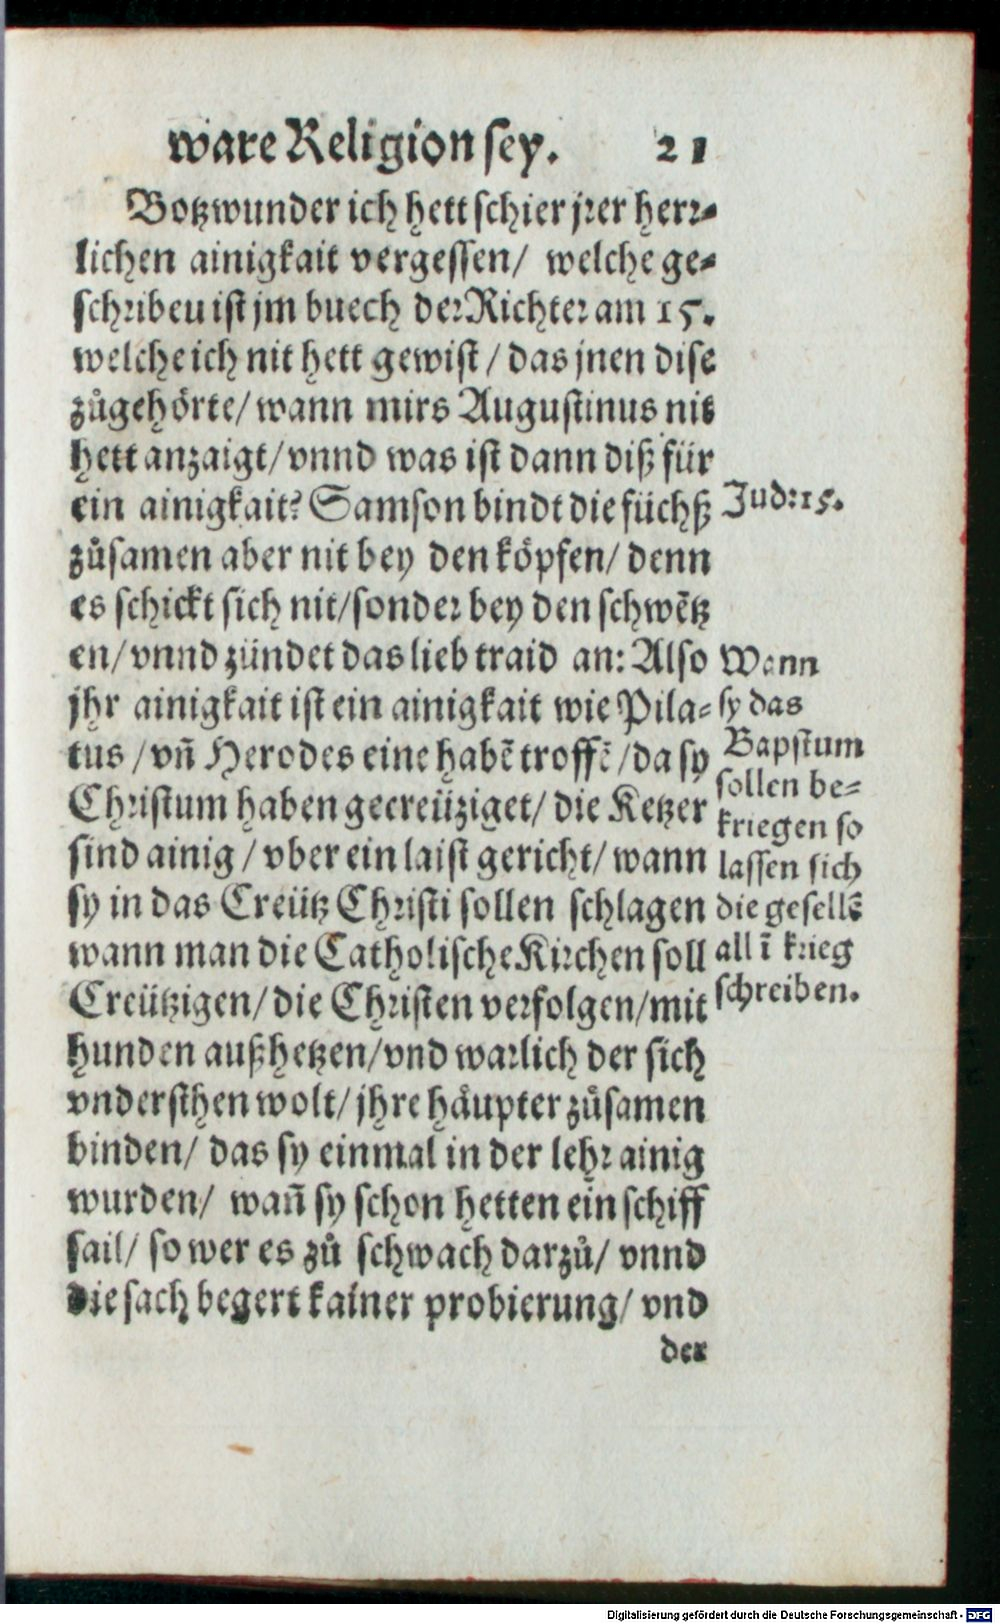 ware Religion sey. 21
Botzwunder ich hett schier jrer herr-
lichen ainigkait vergessen/ welche ge-
schribeu ist jm buech der Richter am 15.
welche ich nit hett gewist/ das jnen dise
zůgehörte/ wann mirs Augustinus nit
hett anzaigt/ vnnd was ist dann diß für
ein ainigkait? Samson bindt die füchß
zůsamen aber nit bey den köpfen/ denn
es schickt sich nit/ sonder bey den schwẽtz
en/ vnnd zündet das lieb traid an: Also
jhr ainigkait ist ein ainigkait wie Pila-
tus/ vñ Herodes eine habẽ troffẽ/ da sy
Christum haben gecreüziget/ die Ketzer
sind ainig/ vber ein laist gericht/ wann
sy in das Creütz Christi sollen schlagen
wann man die Catholische Kirchen soll
Creützigen/ die Christen verfolgen/ mit
hunden außhetzen/ vnd warlich der sich
vndersthen wolt/ jhre häupter zůsamen
binden/ das sy einmal in der lehr ainig
wurden/ wañ sy schon hetten ein schiff
sail/ so wer es zů schwach darzů/ vnnd
die sach begert kainer probierung/ vnd
der
Jud:15.
Wann
sy das
Bapstum
sollen be-
kriegen so
lassen sich
die gesellẽ
all ĩ krieg
schreiben.
Digitalisierung gefördert durch die Deutsche Forschungsgemeinschaft - DFG